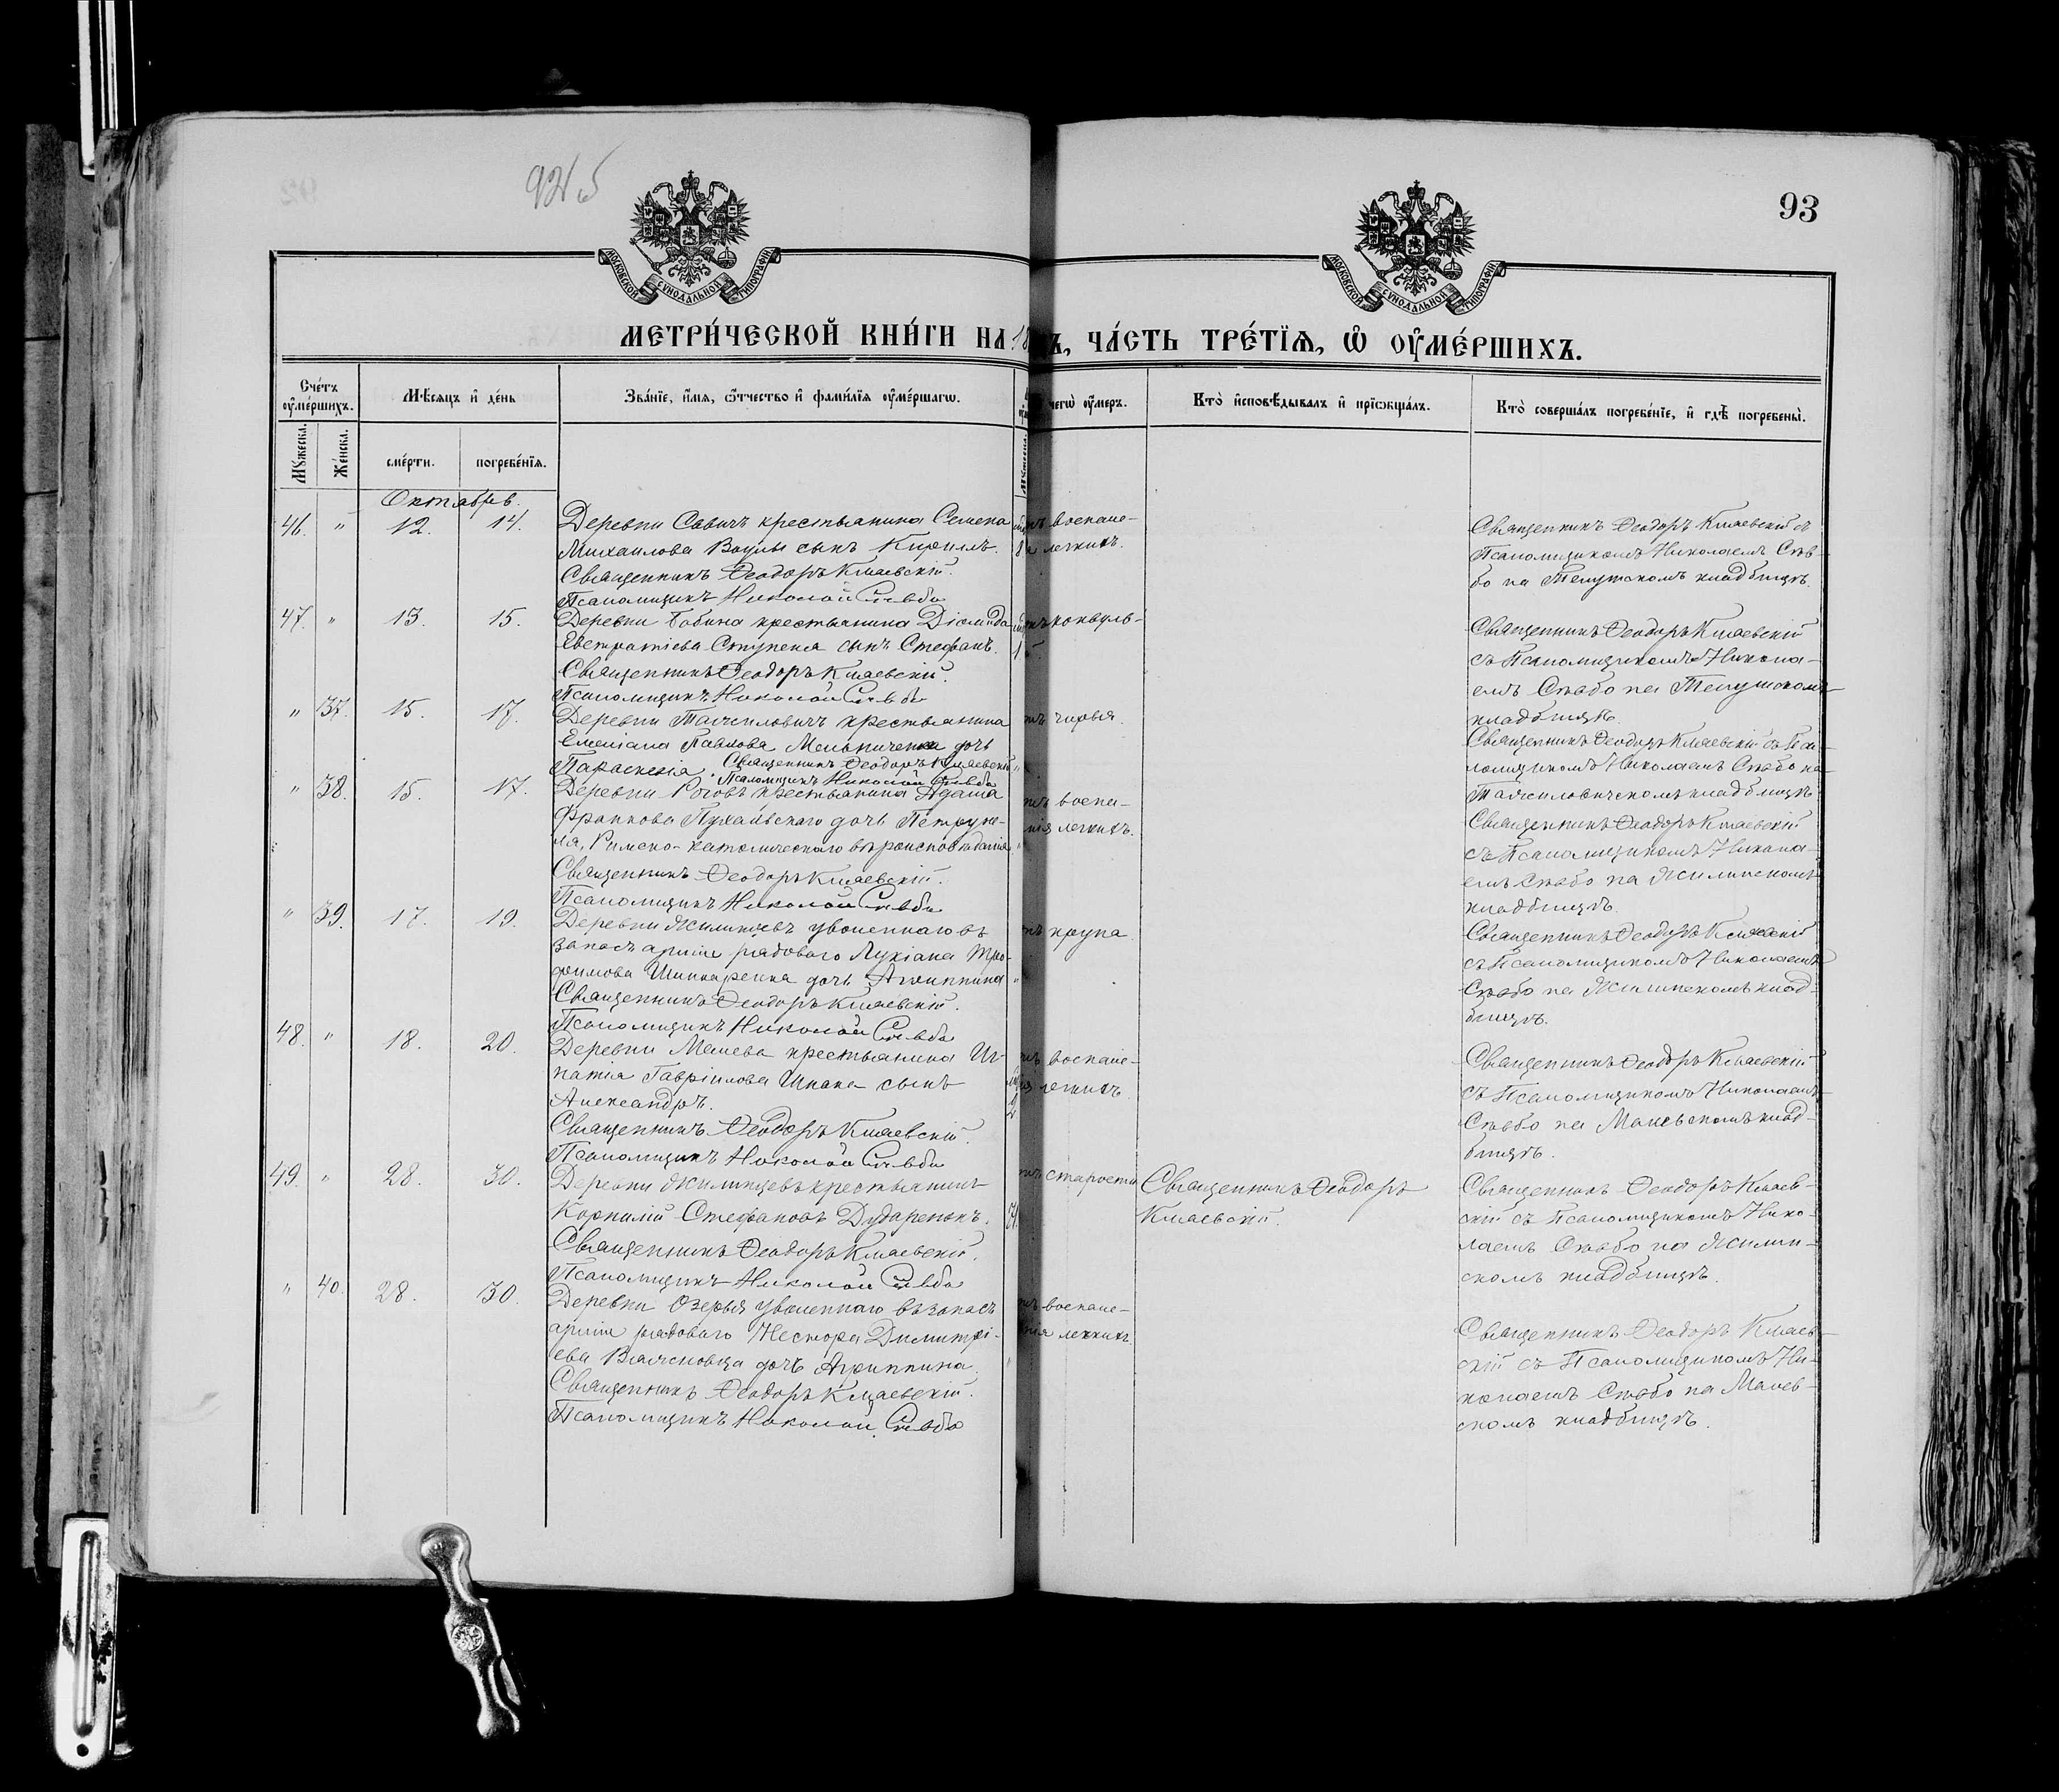 92об
93
МОСКОВСКОЙ СУНОДАЛЬНОЙ ТИПОГРАФІИ
МОСКОВСКОЙ СУНОДАЛЬНОЙ ТИПОГРАФІИ
МЕТРИ́ЧЕСКОЙ КНИ́ГИ НА 18
Ъ, ЧА́СТЬ ТРЕ́ТІѦ, Ѡ҆ ОУ҆МЕ́РШИХЪ.
Сче́тъ оу҆ме́ршихъ.
Мѣ́сяцъ и҆ де́нь
Зва́нїе, и҆́мя, ѻ҆́тчество и҆ фами́лїя оу҆ме́ршагѡ.
чегѡ̀ оу҆́меръ.
Кто̀ и҆сповѣ́дывалъ и҆ прїѡбща́лъ.
Кто̀ соверша́лъ погребе́нїе, и҆ гдѣ̀ погребены̀.
Мꙋ́жеска.
Же́нска.
сме́рти.
погребе́нїя.
Октябрь.
46. " 12. 14. Деревни Савичъ крестьянина Семена
Михаилова Воулы сынъ Кириллъ.
Священникъ Ѳеодоръ Кмаевскій.
Псаломщикъ Николай Слабо
воспале-
легкихъ.
Священникъ Ѳеодоръ Кмаевскій съ
Псаломщикомъ Николаемъ Слѣ-
бо на Телушскомъ кладбищѣ.
47. " 13. 15. Деревни Бабина крестьянина Діомида
Евстратіева Ступеня сынъ Стефанъ.
Священникъ Ѳеодоръ Кмаевскій.
Псаломщикъ Николай
конвуль-
Священникъ Ѳеодоръ Кмаевскій
съ Псаломщикомъ Никола-
емъ на Телушскомъ
кладбищѣ.
" 37. 15. 17. Деревни Тажиловичъ крестьянина
Емеліана Павлова Мельниченка дочь
Параскевія. Священникъ Ѳеодоръ Кмаевскій
Псаломщикъ Николай
чирья.
Священникъ Ѳеодоръ Кмаевскій съ Пса-
ломщикомъ Николаемъ на
Тажиловичскомъ кладбищѣ
" 38. 15. 17. Деревни Роговъ крестьянина Адама
Франкова Пухальскаго дочь Петруне-
ля, Римско-католическаго вѣроисповѣданія
Священникъ Ѳеодоръ Кмаевскій.
Псаломщикъ Николай
воспа-
нія легкихъ.
Священникъ Ѳеодоръ Кмаевскій
съ Псаломщикомъ Никола-
емъ на Жилинскомъ
кладбищѣ.
" 39. 17. 19. Деревни Жилинцевъ уволеннаго въ
запасъ арміи рядового Лукіана Тро-
фимова Шинкаренка дочь Агриппина
Священникъ Ѳеодоръ Кмаевскій.
Псаломщикъ Николай
крупа
Священникъ Ѳеодоръ Кмаевскій
съ Псаломщикомъ Николаемъ
на Жилинскомъ клад-
бищѣ.
48. " 18. 20. Деревни Малева крестьянина Иг-
натія Гавріилова Шпака сынъ
Александръ.
Священникъ Ѳеодоръ Кмаевскій.
Псаломщикъ Николай
воспале-
легкихъ.
Священникъ Ѳеодоръ Кмаевскій
съ Псаломщикомъ Николаемъ
на Малевскомъ клад-
бищѣ.
49. " 28. 30. Деревни Жилинцевъ крестьянинъ
Корнилій Стефановъ Дударенокъ.
Священникъ Ѳеодоръ Кмаевскій.
Псаломщикъ Николай
старости
Священникъ Ѳеодоръ
Кмаевскій.
Священникъ Ѳеодоръ Кмаев-
скій съ Псаломщикомъ Нико-
лаемъ на Жилин-
скомъ кладбищѣ.
" 40. 28. 30. Деревни Озерья уволеннаго въ запасъ
арміи рядового Нестора Димитрі-
ева дочь Агриппина
Священникъ Ѳеодоръ Кмаевскій.
Псаломщикъ Николай
воспале-
нія легкихъ
Священникъ Ѳеодоръ Кмаев-
скій съ Псаломщикомъ Ни-
колаемъ на Малев-
скомъ кладбищѣ.